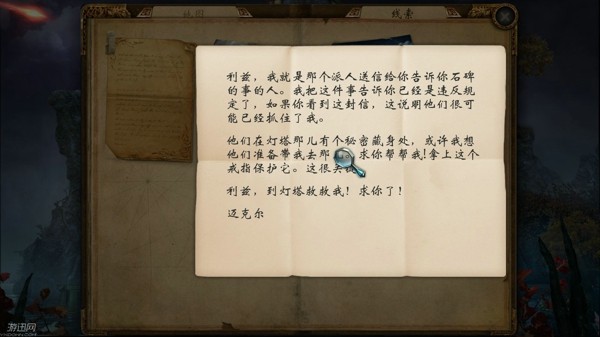 线索
利兹，我就是那个派人送信给你告诉你石碑
的事的人。我把这件事告诉你已经是违反规
定了，如果你看到这封信，这说明他们很可
能已经抓住了我。
他们在灯塔那儿有个秘密藏身处，或许我想
他们准备带我去那 求你帮帮我!拿上这个
戒指保护它。这很关
利兹，到灯塔救救我! 求你了!
迈克尔
游迅网